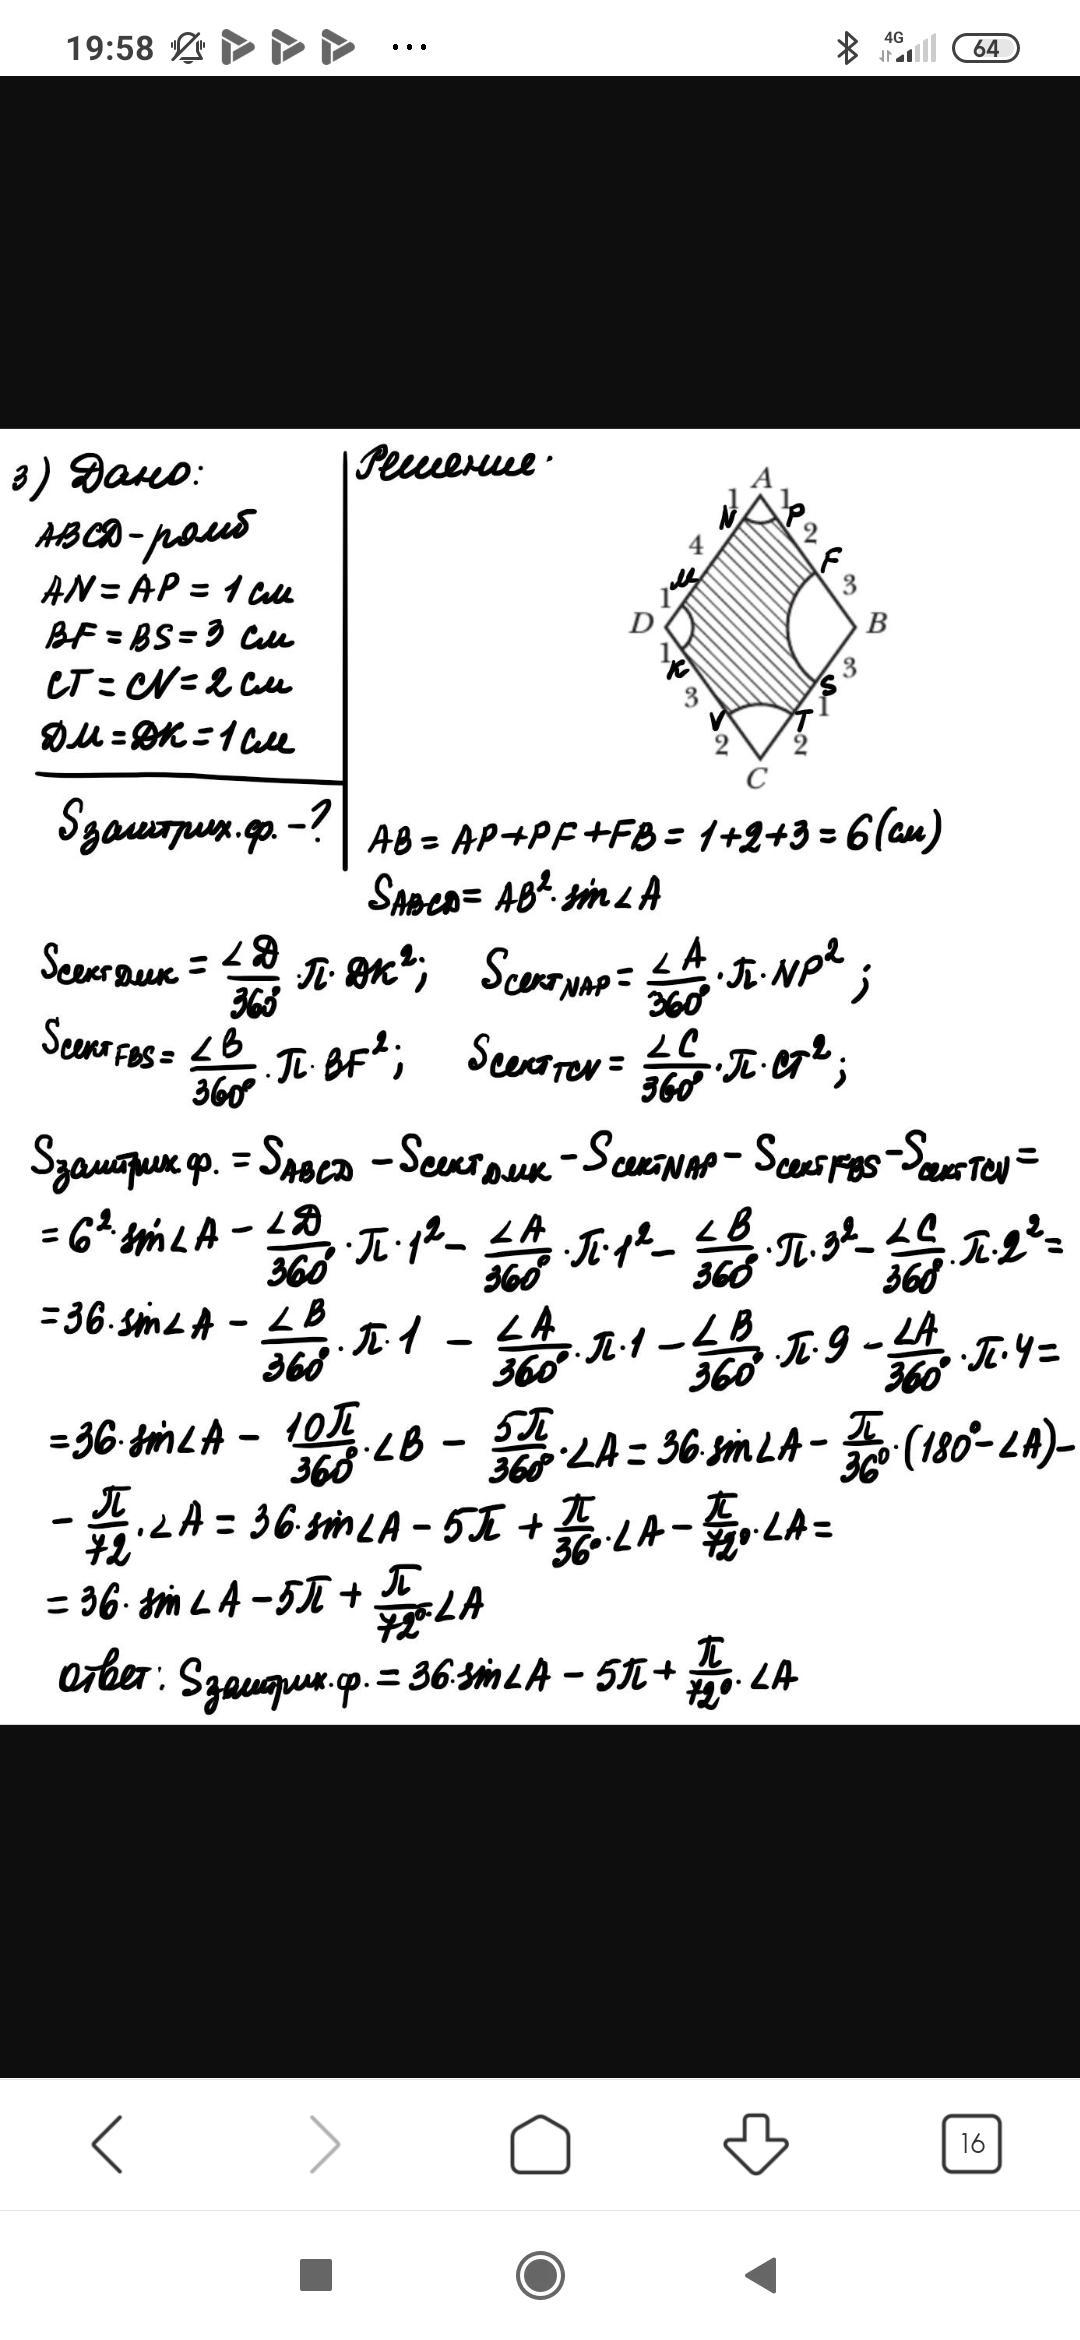 19:58 4G 64
3) Дано:
ABCD - ромб
AN = AP = 1 см
BF = BS = 3 см
CT = CN = 2 см
DM = DK = 1 см
Sзаштрих.ф. - ?
Решение.
A
1 1
N P
4 2
F
M 3
1
D B
1
K 3
S
3 1
V T
2 2
C
AB = AP + PF + FB = 1 + 2 + 3 = 6 (см)
S_ABCD = AB² · sin∠A
Sсект DMK = ∠D/360° · π · DK²; Sсект NAP = ∠A/360° · π · NP²;
Sсект FBS = ∠B/360° · π · BF²; Sсект TCV = ∠C/360° · π · CT²;
Sзаштрих.ф. = S_ABCD - Sсект DMK - Sсект NAP - Sсект FBS - Sсект TCV =
= 6² · sin∠A - ∠D/360° · π · 1² - ∠A/360° · π · 1² - ∠B/360° · π · 3² - ∠C/360° · π · 2² =
= 36 · sin∠A - ∠B/360° · π · 1 - ∠A/360° · π · 1 - ∠B/360° · π · 9 - ∠A/360° · π · 4 =
= 36 · sin∠A - 10π/360° · ∠B - 5π/360° · ∠A = 36 · sin∠A - π/36° · (180° - ∠A) -
- π/72 · ∠A = 36 · sin∠A - 5π + π/36° · ∠A - π/72° · ∠A =
= 36 · sin∠A - 5π + π/72° · ∠A
Ответ: Sзаштрих.ф. = 36 · sin∠A - 5π + π/72° · ∠A
16